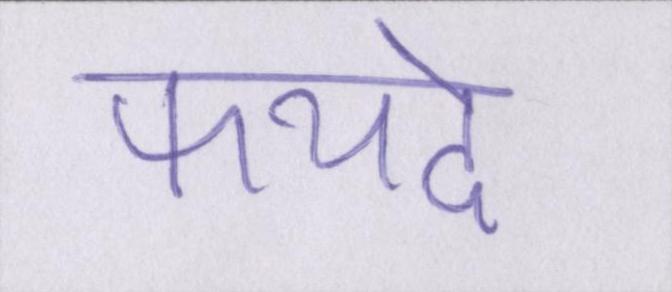 फायदे